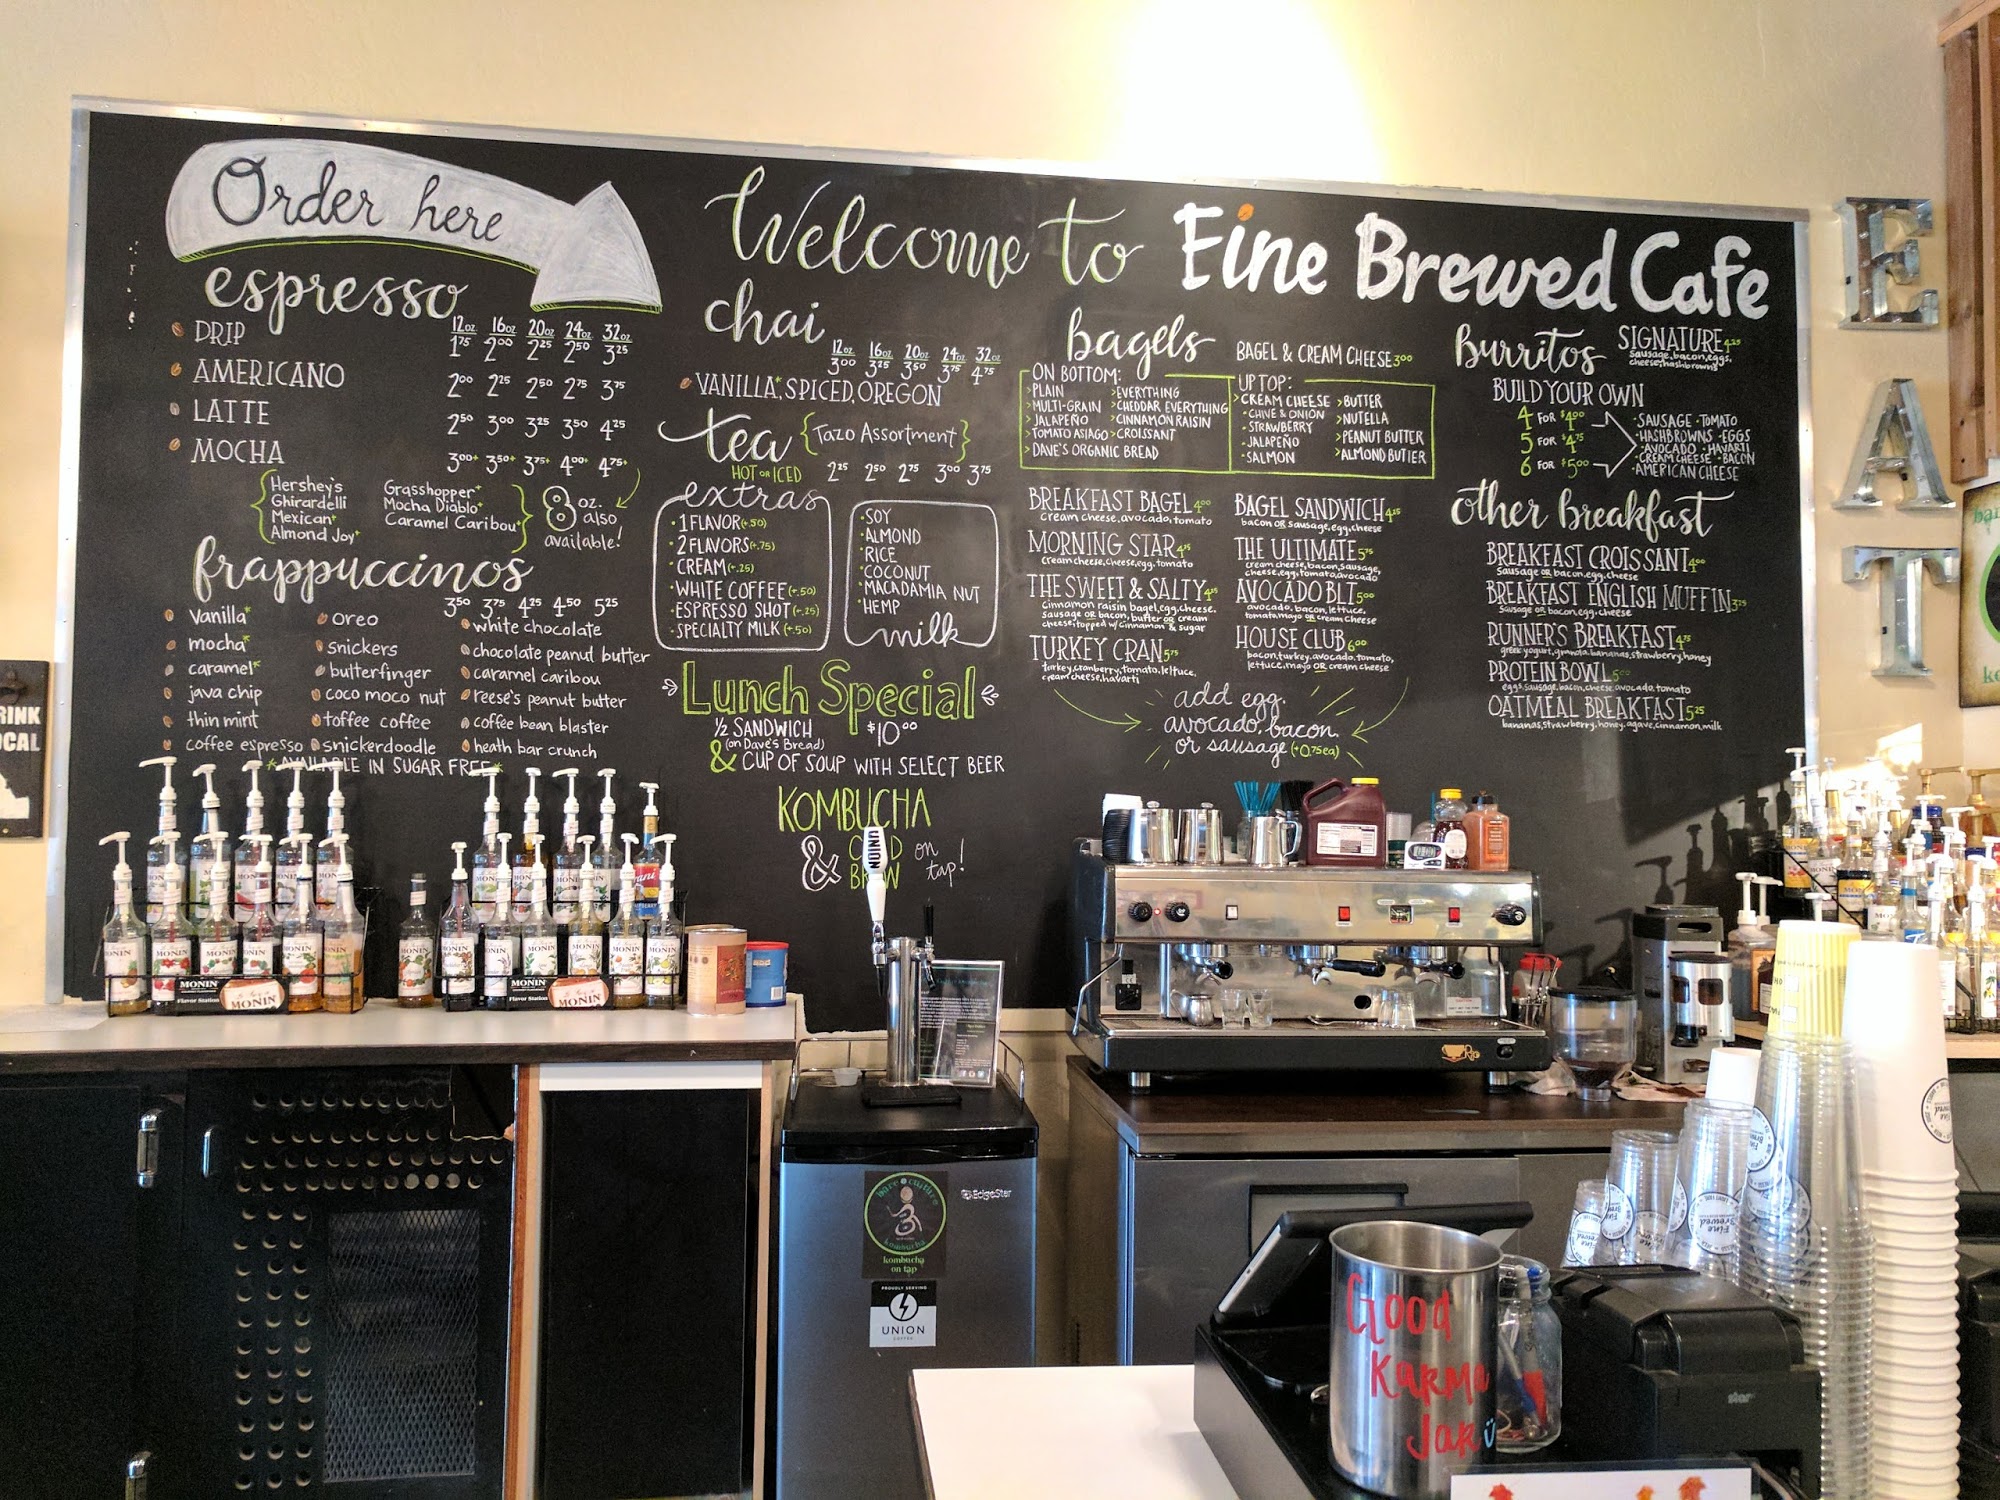 Order here
Welcome to Fine Brewed Cafe
espresso
12oz 16oz 20oz 24oz 32oz
DRIP 1.75 2.00 2.25 2.50 3.25
AMERICANO 2.00 2.25 2.50 2.75 3.75
LATTE 2.50 3.00 3.25 3.50 4.25
MOCHA 3.00+ 3.50+ 3.75+ 4.00+ 4.75+
Hershey's
Ghirardelli
Mexican+
Almond Joy+
Grasshopper+
Mocha Diablo+
Caramel Caribou+
8 oz. also available!
frappuccinos
3.50 3.75 4.25 4.50 5.25
vanilla*
mocha*
caramel*
java chip
thin mint
coffee espresso
oreo
snickers
butterfinger
coco moco nut
toffee coffee
snickerdoodle
white chocolate
chocolate peanut butter
caramel caribou
reese's peanut butter
coffee bean blaster
heath bar crunch
*AVAILABLE IN SUGAR FREE*
chai
12oz 16oz 20oz 24oz 32oz
3.00 3.25 3.50 3.75 4.75
VANILLA*, SPICED, OREGON
tea {Tazo Assortment}
HOT or ICED 2.25 2.50 2.75 3.00 3.75
extras
• 1 FLAVOR (+.50)
• 2 FLAVORS (+.75)
• CREAM (+.25)
• WHITE COFFEE (+.50)
• ESPRESSO SHOT (+.25)
• SPECIALTY MILK (+.50)
• SOY
• ALMOND
• RICE
• COCONUT
• MACADAMIA NUT
• HEMP
milk
Lunch Special
½ SANDWICH
(on Dave's Bread)
& CUP OF SOUP WITH SELECT BEER
$10.00
KOMBUCHA
& COLD
BREW
on tap!
bagels
BAGEL & CREAM CHEESE 3.00
ON BOTTOM:
> PLAIN
> MULTI-GRAIN
> JALAPEÑO
> TOMATO ASIAGO
> DAVE'S ORGANIC BREAD
> EVERYTHING
> CHEDDAR EVERYTHING
> CINNAMON RAISIN
> CROISSANT
UP TOP:
> CREAM CHEESE
• CHIVE & ONION
• STRAWBERRY
• JALAPEÑO
• SALMON
> BUTTER
> NUTELLA
> PEANUT BUTTER
> ALMOND BUTTER
BREAKFAST BAGEL 4.00
cream cheese, avocado, tomato
MORNING STAR 4.75
cream cheese, egg, tomato
THE SWEET & SALTY 4.75
cinnamon raisin bagel, egg, cheese,
sausage OR bacon, butter OR cream
cheese, topped w/ cinnamon & sugar
TURKEY CRAN 5.75
turkey, cranberry, tomato, lettuce,
cream cheese, havarti
BAGEL SANDWICH 4.25
bacon OR sausage, egg, cheese
THE ULTIMATE 5.75
cream cheese, bacon, sausage,
cheese, egg, tomato, avocado
AVOCADO BLT 5.00
avocado, bacon, lettuce,
tomato, mayo OR cream cheese
HOUSE CLUB 6.00
bacon, turkey, avocado, tomato,
lettuce, mayo OR cream cheese
add egg,
avocado, bacon,
or sausage (+0.75ea)
Burritos
SIGNATURE 4.25
sausage, bacon, eggs,
cheese, hashbrowns
BUILD YOUR OWN
4 FOR $4.00
5 FOR $4.75
6 FOR $5.00
• SAUSAGE • TOMATO
• HASHBROWNS • EGGS
• AVOCADO • HAVARTI
• CREAM CHEESE • BACON
• AMERICAN CHEESE
other breakfast
BREAKFAST CROISSANT 4.00
sausage OR bacon, egg, cheese
BREAKFAST ENGLISH MUFFIN 3.75
sausage OR bacon, egg, cheese
RUNNER'S BREAKFAST 4.75
greek yogurt, granola, bananas, strawberry, honey
PROTEIN BOWL 5.00
eggs, sausage, bacon, cheese, avocado, tomato
OATMEAL BREAKFAST 5.25
bananas, strawberry, honey, agave, cinnamon, milk
EAT
RINK
OCAL
UNION
MONIN
MONIN
MONIN
Flavor Station
MONIN
MONIN
Flavor Station
MONIN
Rio
EdgeStar
kombucha
kombucha
on tap
PROUDLY SERVING
UNION
COFFEE
Good
Karma
Jar
star
Fine
Brewed